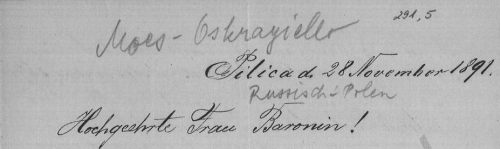 291,5
Moes-Oskragiello
Pilica d. 28 November 1891.
Russisch-Polen
Hochgeehrte Frau Baronin!